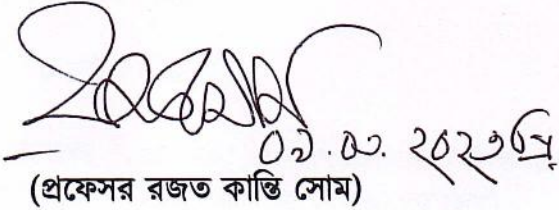 ০৯.০৩.২০২৩খ্রি
(প্রফেসর রজত কান্তি সোম)